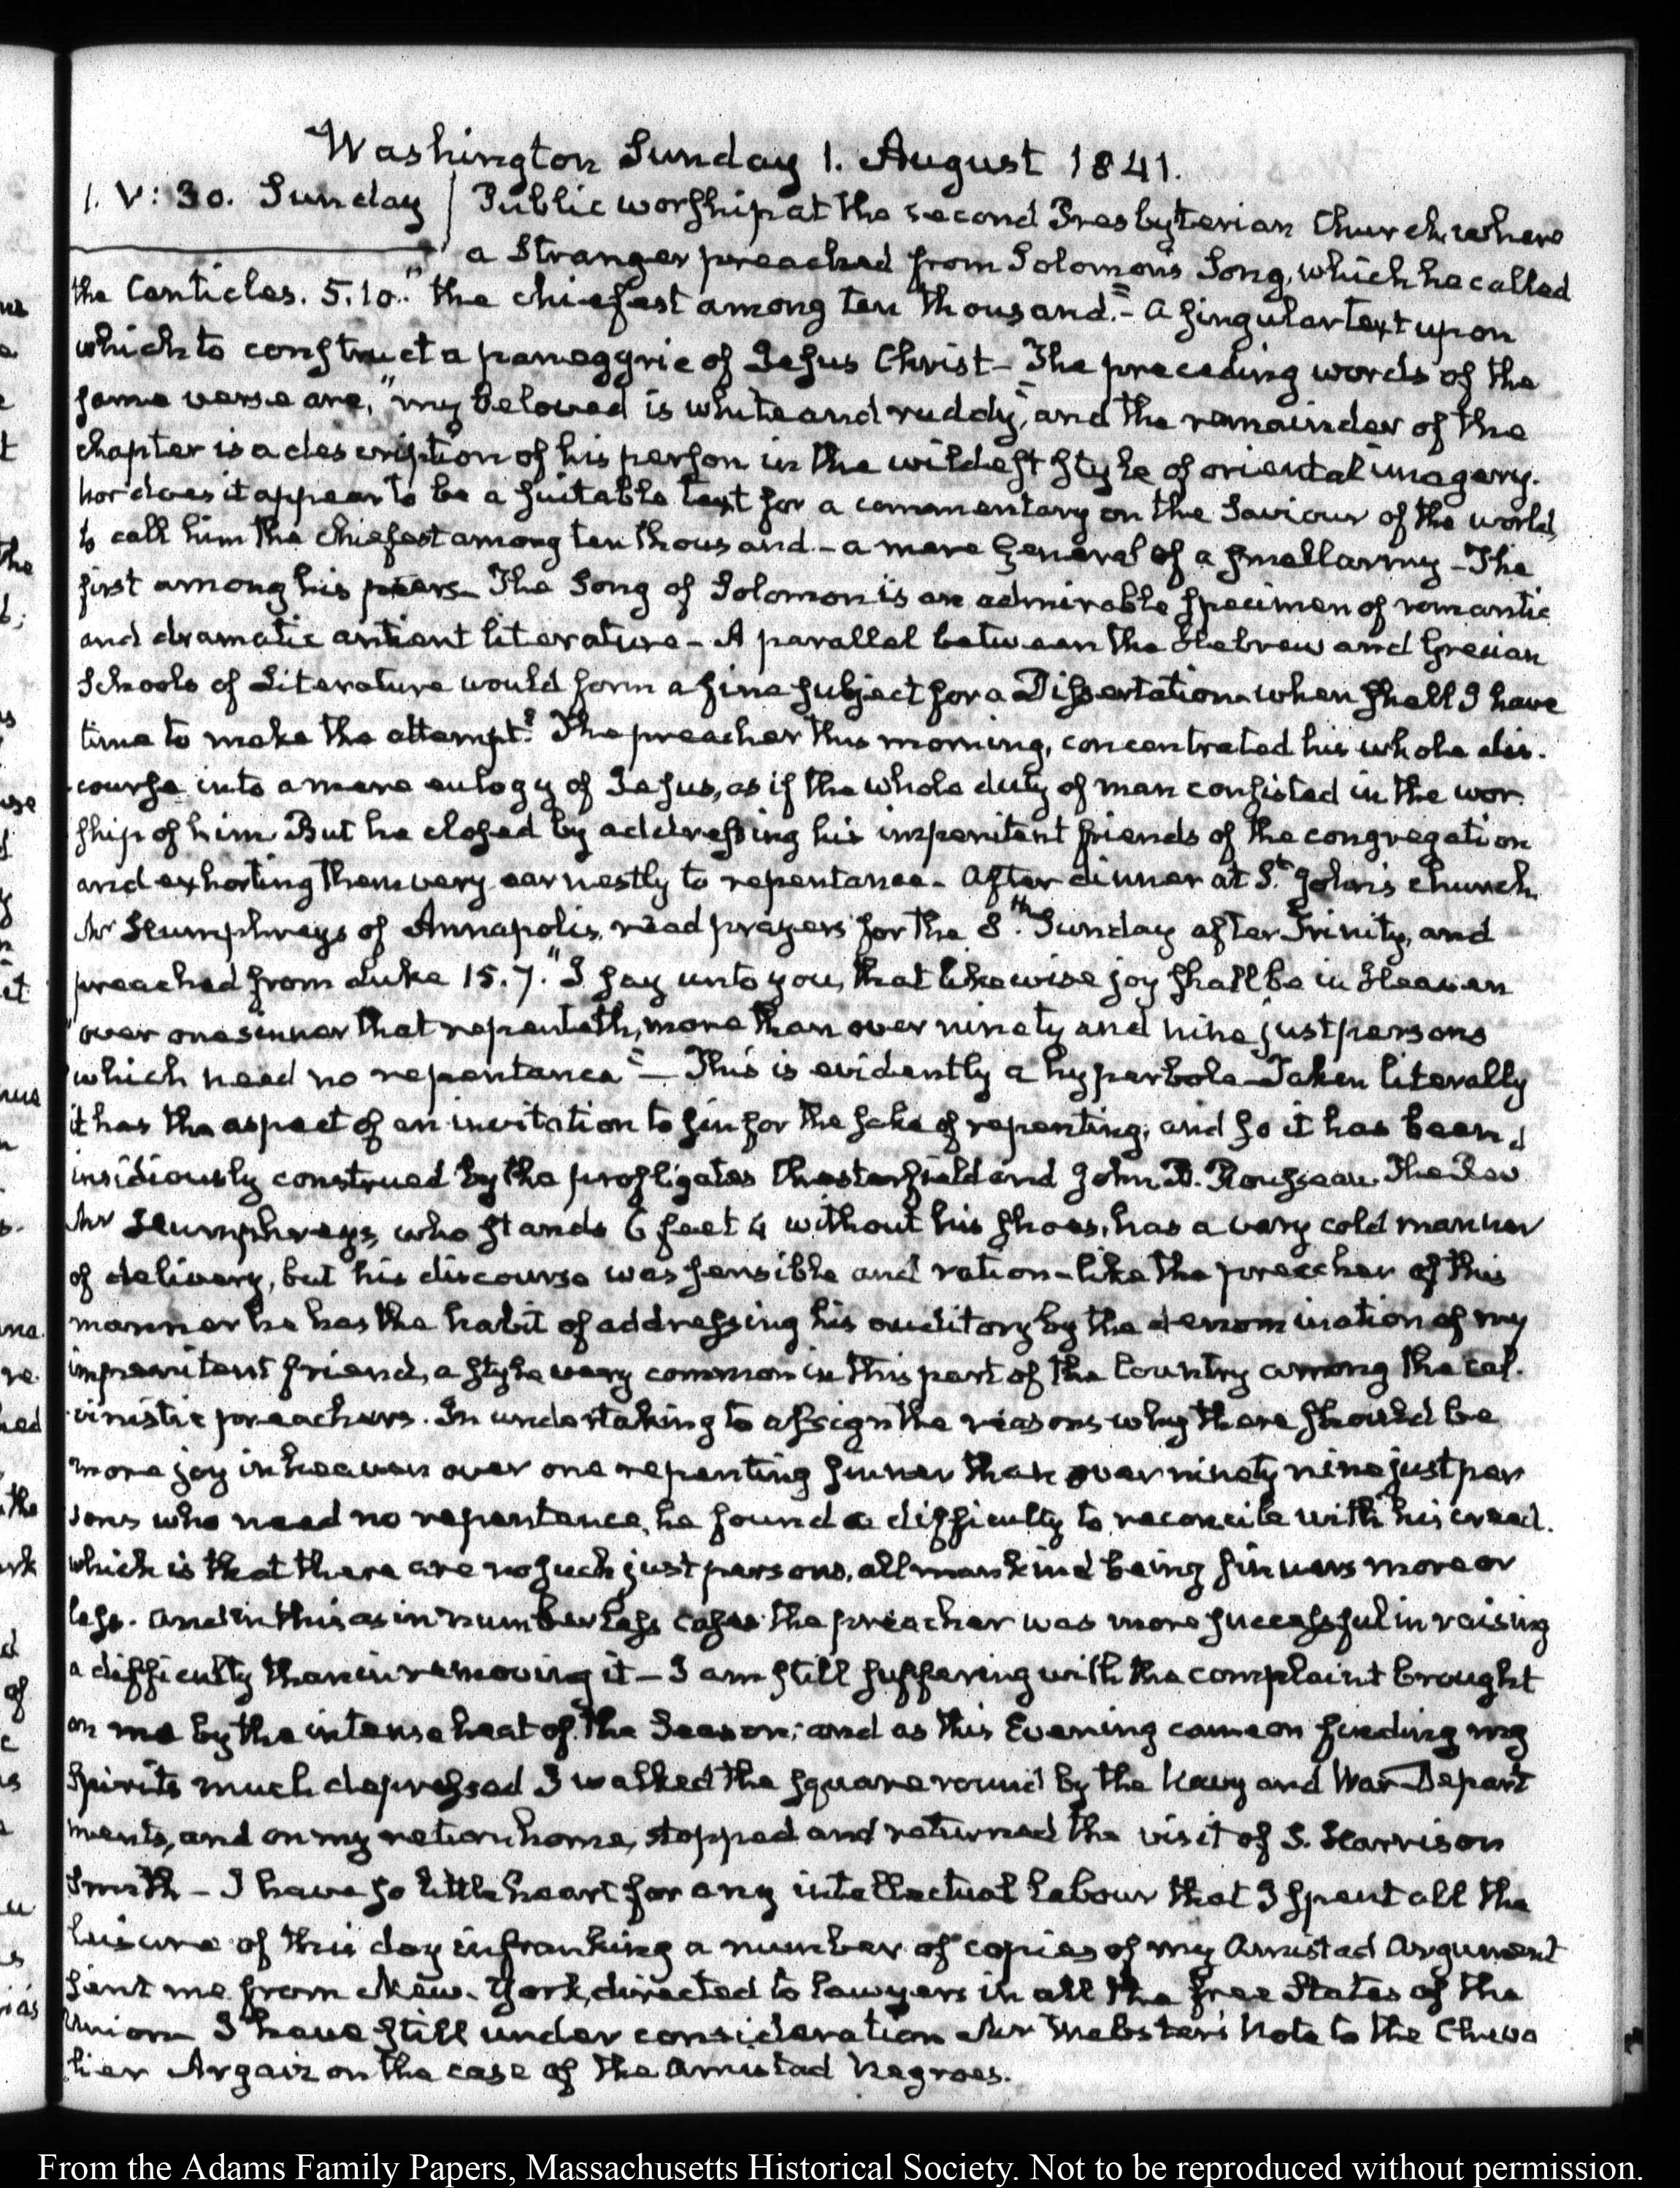 Washington Sunday 1. August 1841.
1. V: 30. Sunday
Public worship at the second Presbyterian Church, where
a Stranger preached from Solomon's Song, which he called
the Canticles. 5.10. "the chiefest among ten thousand."- A singular text upon
which to construct a panegyric of Jesus Christ- The preceding words of the
same verse are, "my beloved is white and ruddy," and the remainder of the
chapter is a description of his person in the wildest style of oriental imagery.
nor does it appear to be a suitable text for a commentary on the Saviour of the world,
to call him the chiefest among ten thousand - a mere General of a small army - The
first among his peers- The Song of Solomon is an admirable specimen of romantic
and dramatic antient literature - A parallel between the Hebrew and Grecian
Schools of Literature would form a fine subject for a Dissertation- when shall I have
time to make the attempt? The preacher this morning, concentrated his whole dis-
course into a mere eulogy of Jesus, as if the whole duty of man consisted in the wor-
ship of him. But he closed by addressing his impenitent friends of the congregation
and exhorting them very earnestly to repentance- After dinner at St. John's church,
Mr Humphreys of Annapolis, read prayers for the 8th. Sunday after Trinity, and
preached from Luke 15.7. "I say unto you, that likewise joy shall be in Heaven
"over one sinner that repenteth, more than over ninety and nine just persons
"which need no repentance" - This is evidently a hyperbole- Taken literally
it has the aspect of an invitation to sin for the sake of repenting; and so it has been
insidiously construed by the profligates Chesterfield and John B. Rousseau. The Revd
Mr Humphreys, who stands 6 feet 4 without his shoes, has a very cold manner
of delivery, but his discourse was sensible and ration- like the preacher of this
manner he has the habit of addressing his auditory by the denomination of my
impenitent friend, a style very common in this part of the Country among the cal-
vinistic preachers. In undertaking to assign the reasons why there should be
more joy in heaven over one repenting sinner than over ninety nine just per
sons who need no repentance, he found a difficulty to reconcile with his creed.
which is that there are no such just persons, all mankind being sinners more or
less. and in this as in numberless cases the preacher was more successful in raising
a difficulty than in removing it - I am still suffering with the complaint brought
on me by the intense heat of the Season; and as this Evening came on finding my
Spirits much depressed I walked the square round by the Navy and War Depart
ments, and on my return home, stopped and returned the visit of S. Harrison
Smith - I have so little heart for any intellectual labour that I spent all the
leisure of this day in franking a number of copies of my Amistad Argument
sent me from New-York, directed to lawyers in all the free States of the
Union- I have still under consideration Mr Webster's Note to the Cheva
lier Argaiz on the case of the Amistad Negroes.
From the Adams Family Papers, Massachusetts Historical Society. Not to be reproduced without permission.